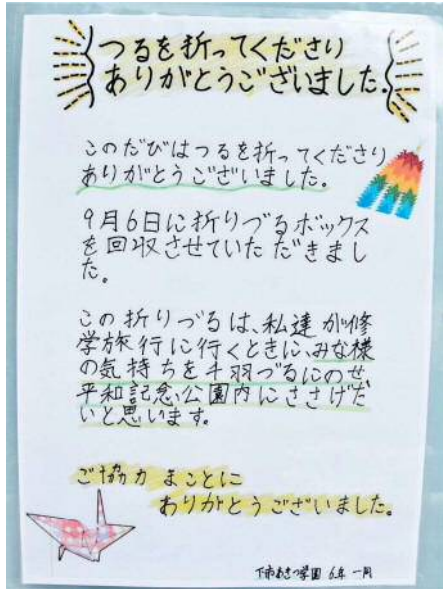 つるを折ってくださり
ありがとうございました.
このだびはつるを折ってくださり
ありがとうございました。
9月6日に折りづるボックス
を回収させていただきまし
た。
この折りづるは、私達が修
学旅行に行くときに、みな様
の気持ちを千羽づるにのせ
平和記念公園内にささげた
いと思います。
ご協力まことに
ありがとうございました。
下市あきつ学園 6年 一同